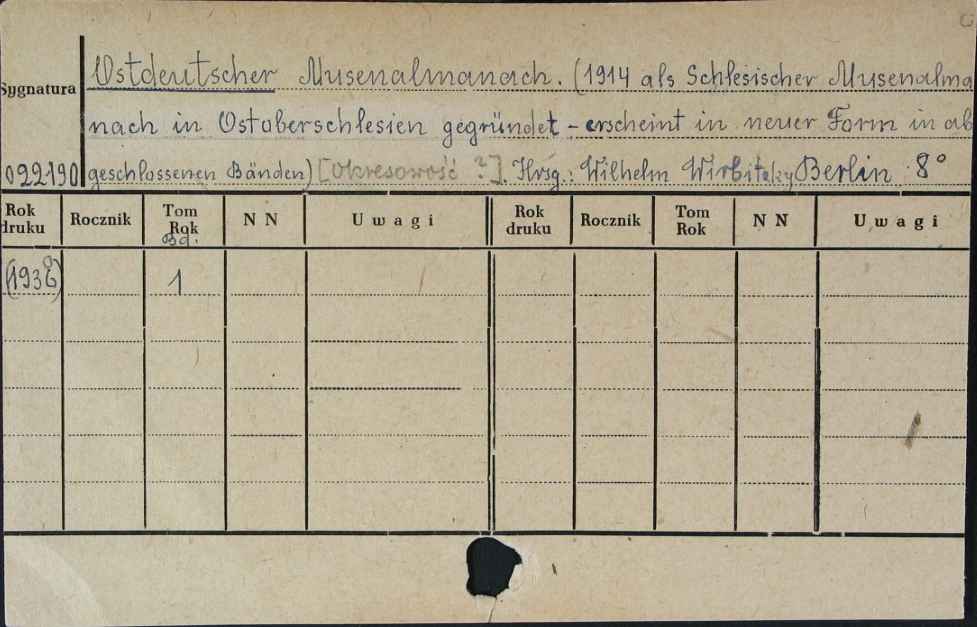 Sygnatura Ostdeutscher Musenalmanach. (1914 als Schlesischer Musenalma
nach in Ostoberschlesien gegründet - erscheint in neuer Form in ab
022190 geschlossenen Bänden) [Okresowość ?]. Hrsg.: Wilhelm Wirbitzky Berlin : 8°
Rok druku Rocznik Tom Rok Bd. N N Uwagi Rok druku Rocznik Tom Rok N N Uwagi
1